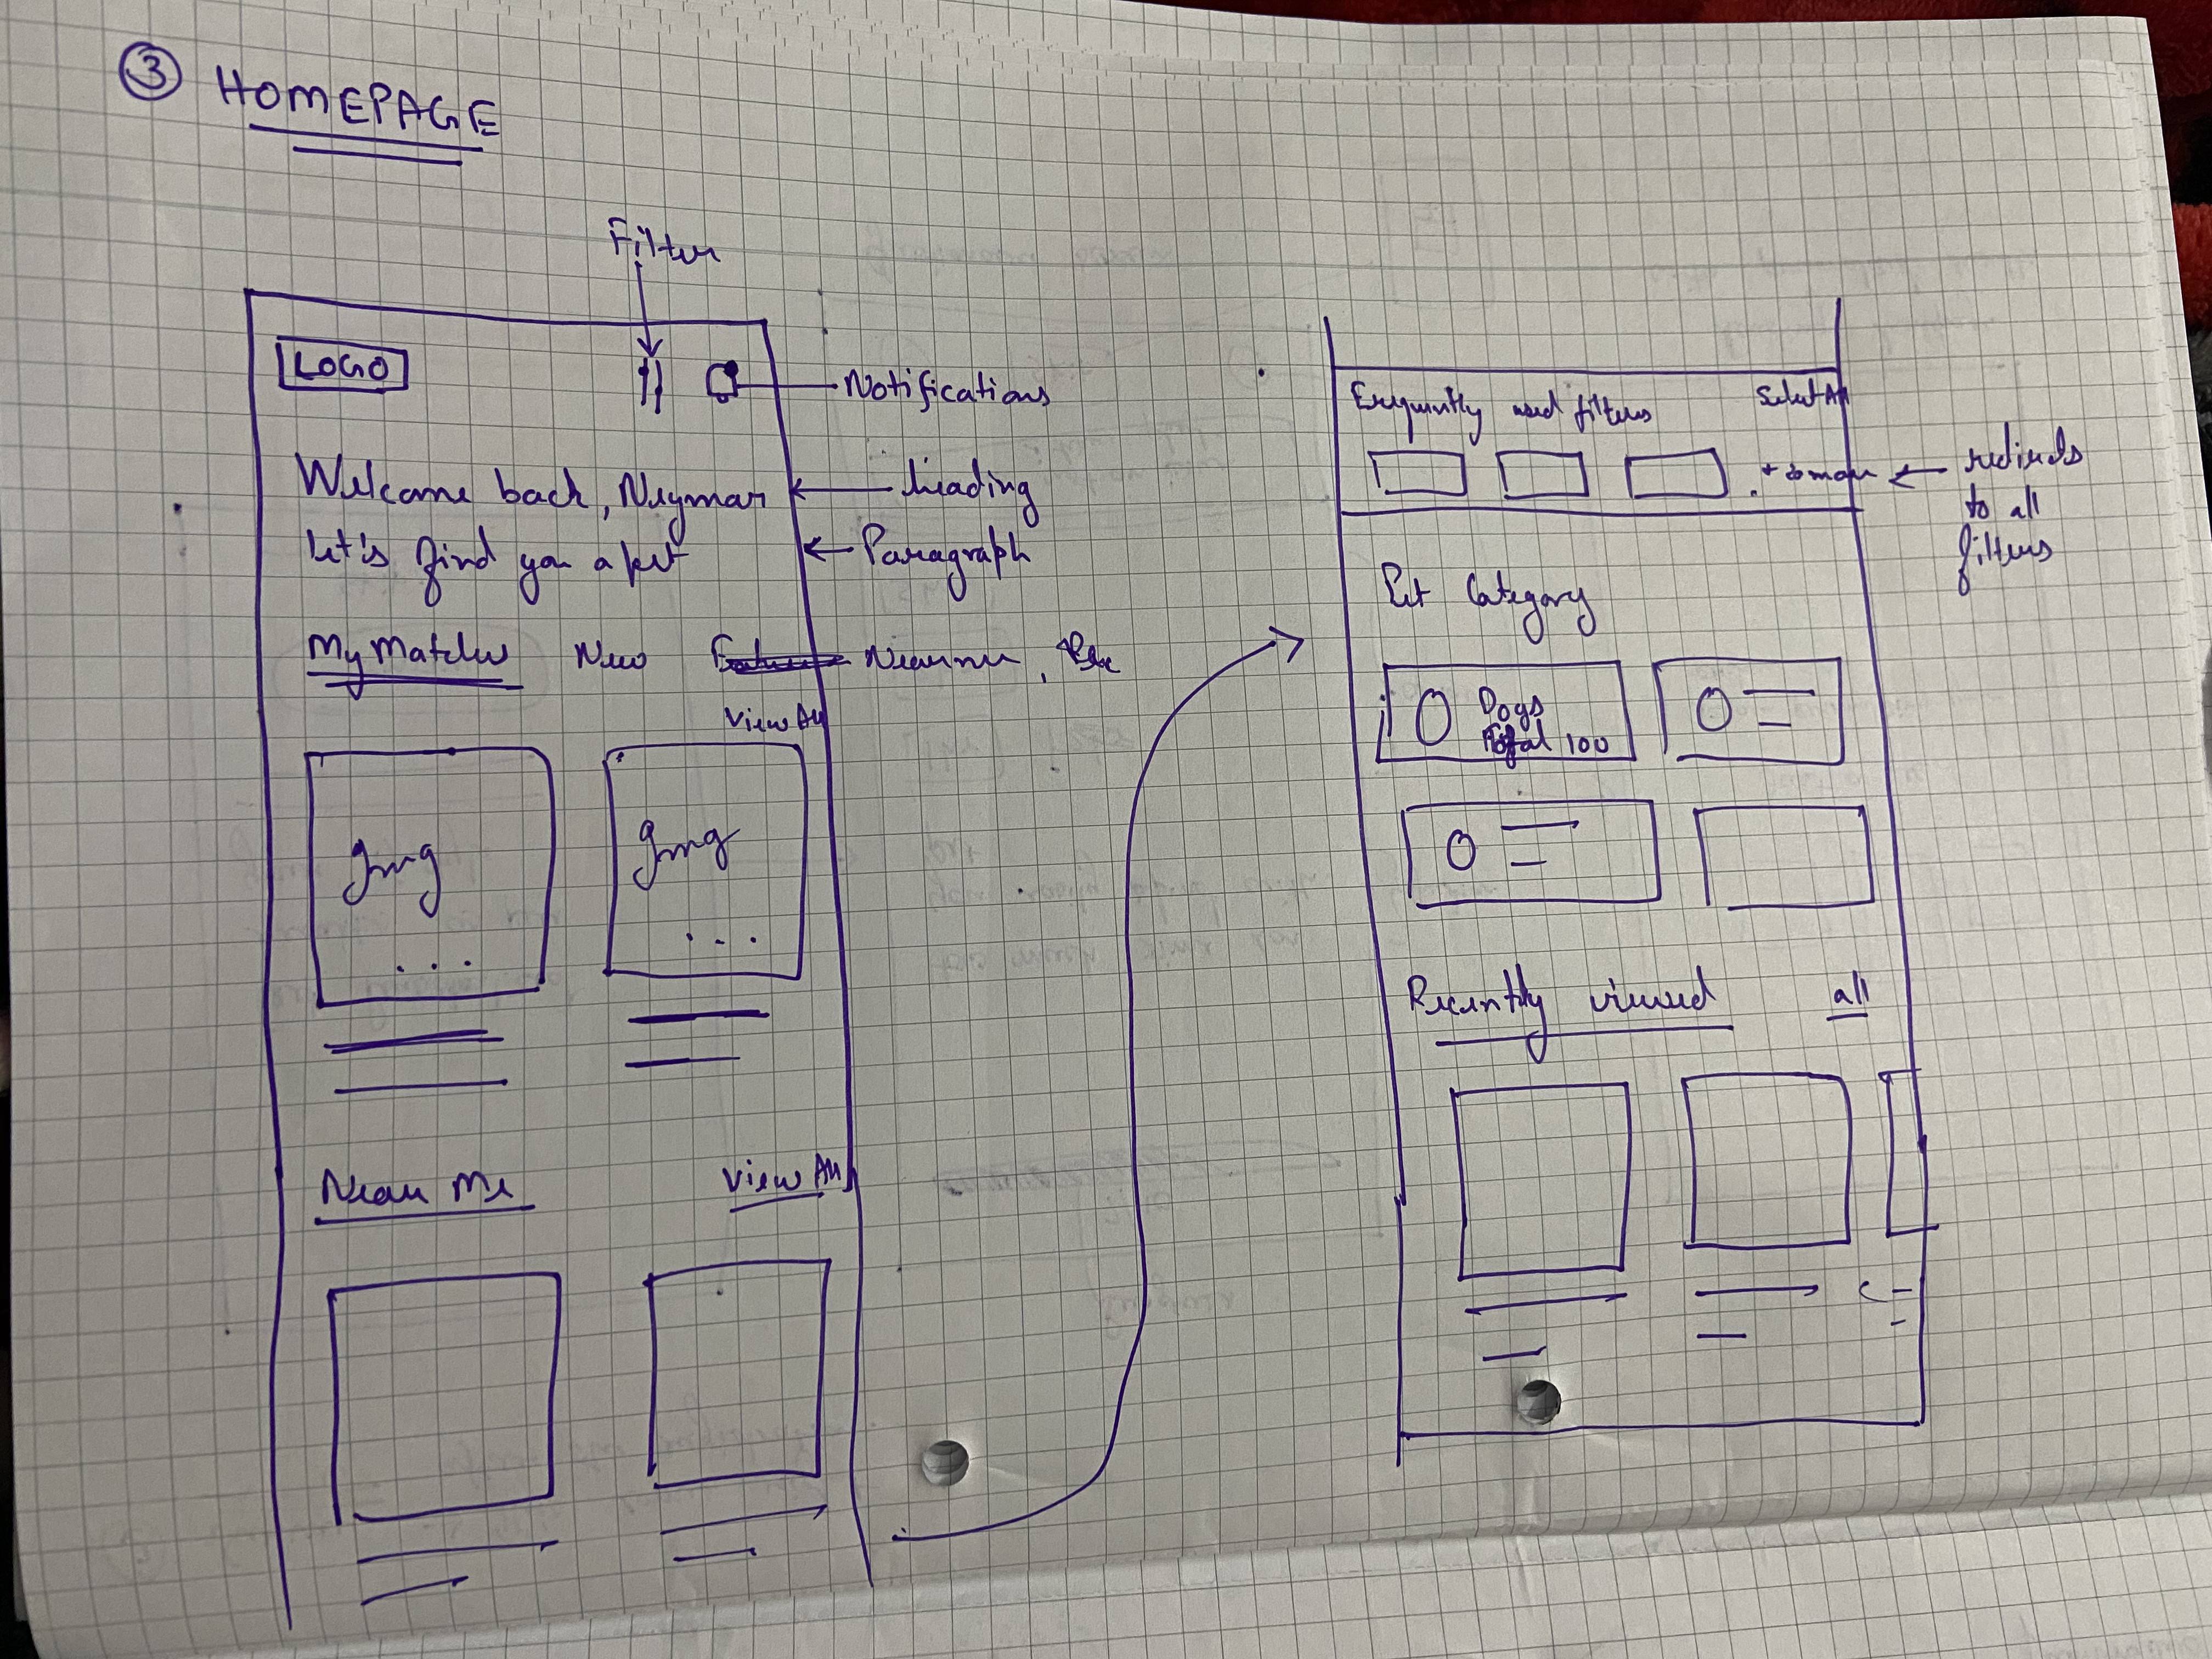 3 HOMEPAGE
Filter
LOGO
Notifications
Welcome back, Neymar
heading
Let's find you a pet
Paragraph
My Matches New Near me,
View All
Img
Img
...
...
Near Me View All
Frequently used filters Select All
+ more
redirects
to all
filters
Pet Category
Dogs
Total 100
Recently viewed all